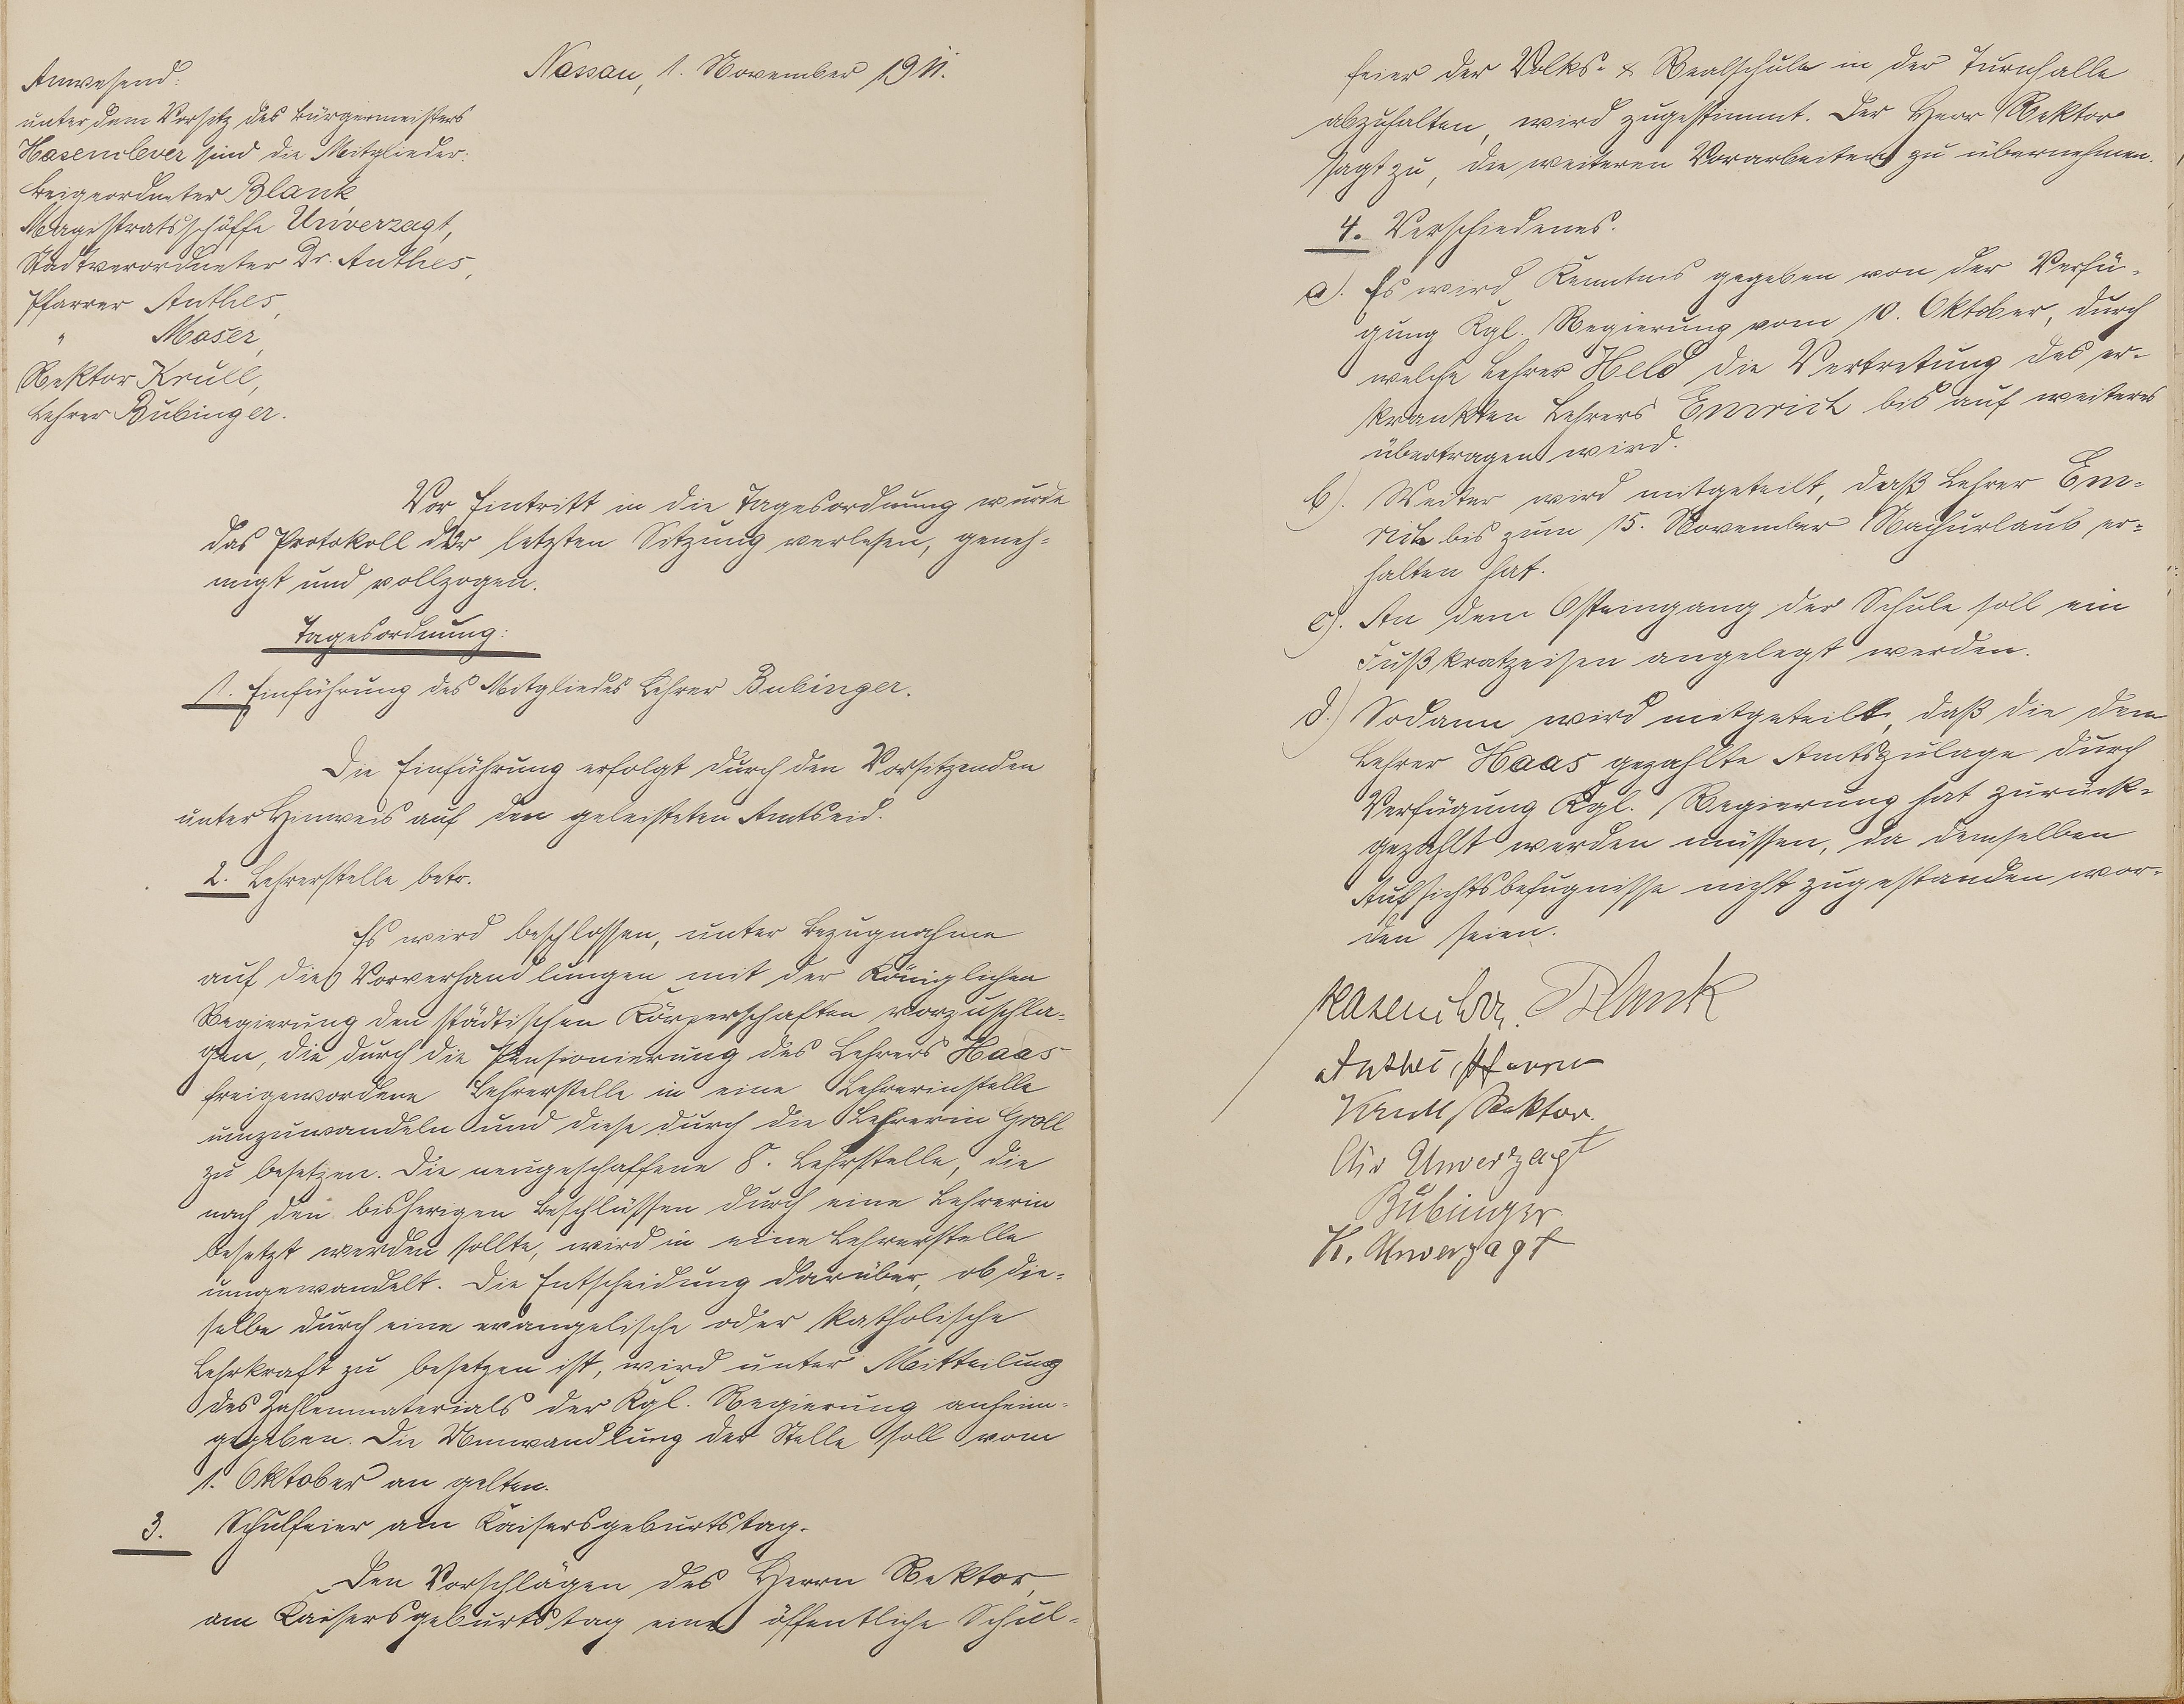 Nassau, 1. November 1911.
Anwesend:
unter dem Vorsitz des Bürgermeisters
Hasenclever sind die Mitglieder:
Beigeordneter Blank
Magistratsschöffe Unverzagt,
Stadtverordneter Dr. Anthes,
Pfarrer Anthes,
" Moser,
Rektor Krull,
Lehrer Bubinger.
Vor Eintritt in die Tagesordnung wurde
das Protokoll der letzten Sitzung verlesen, geneh-
migt und vollzogen.
Tagesordnung:
1. Einführung des Mitgliedes Lehrer Bubinger.
Die Einführung erfolgt durch den Vorsitzenden
unter Hinweis auf den geleisteten Amtseid.
2. Lehrerstelle betr.
Es wird beschlossen, unter Bezugnahme
auf die Vorverhandlungen mit der Königlichen
Regierung den städtischen Körperschaften vorzuschla-
gen, die durch die Pensionierung des Lehrers Haas
freigewordene Lehrerstelle in eine Lehrerinstelle
umzuwandeln und diese durch die Lehrerin Groll
zu besetzen. Die neugeschaffene 8. Lehrstelle, die
nach den bisherigen Beschlüssen durch eine Lehrerin
besetzt werden sollte, wird in eine Lehrerstelle
umgewandelt. Die Entscheidung darüber, ob die-
selbe durch eine evangelische oder katholische
Lehrkraft zu besetzen ist, wird unter Mitteilung
des Zahlenmaterials der Kgl. Regierung anheim-
gegeben. Die Umwandlung der Stelle soll vom
1. Oktober an gelten.
3. Schulfeier am Kaisersgeburtstag.
Den Vorschlägen des Herrn Rektor,
am Kaisersgeburtstag eine öffentliche Schul-
feier der Volks- & Realschule in der Turnhalle
abzuhalten, wird zugestimmt. Der Herr Rektor
sagt zu, die weiteren Vorarbeiten zu übernehmen.
4. Verschiedenes.
a). Es wird Kenntnis gegeben von der Verfü-
gung Kgl. Regierung vom 10. Oktober, durch
welche Lehrer Held die Vertretung des er-
krankten Lehrers Emrich bis auf weiteres
übertragen wird.
b). Weiter wird mitgeteilt, daß Lehrer Em-
rich bis zum 15. November Nachurlaub er-
halten hat.
c). An dem Osteingang der Schule soll ein
Fußkratzeisen angelegt werden.
d.) Sodann wird mitgeteilt, daß die dem
Lehrer Haas gezahlte Amtszulage durch
Verfügung Kgl. Regierung hat zurück-
gezahlt werden müssen, da demselben
Aufsichtsbefugnisse nicht zugestanden wor-
den seien.
Hasenclever. Blank
Anthes, Pfarrer
Krull, Rektor.
Unverzagt
Bubinger
K. Unverzagt